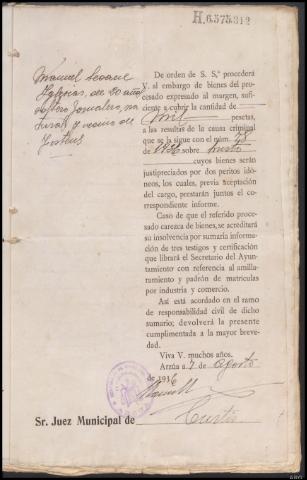 H.6.575.312
Manuel Seoane
Iglesias, de 20 años
soltero Jornalero, na
tural y vecino de
De orden de S. S.ª procederá
V. al embargo de bienes del pro-
cesado expresado al margen, sufi-
ciente a cubrir la cantidad de
mil pesetas,
a las resultas de la causa criminal
que se la sigue con el núm.
de 1936 sobre hurto
cuyos bienes serán
justipreciados por dos peritos idó-
neos, los cuales, previa aceptación
del cargo, prestarán juntos el co-
rrespondiente informe.
Caso de que el referido proce-
sado carezca de bienes, se acreditará
su insolvencia por sumaria informa-
ción de tres testigos y certificación
que librará el Secretario del Ayun-
tamiento con referencia al amilla-
ramiento y padrón de matrículas
por industria y comercio.
Así está acordado en el ramo
de responsabilidad civil de dicho
sumario; devolverá la presente
cumplimentada a la mayor breve-
dad.
Viva V. muchos años.
Arzúa a 7 de agosto
de 1936
Sr. Juez Municipal de Curtis